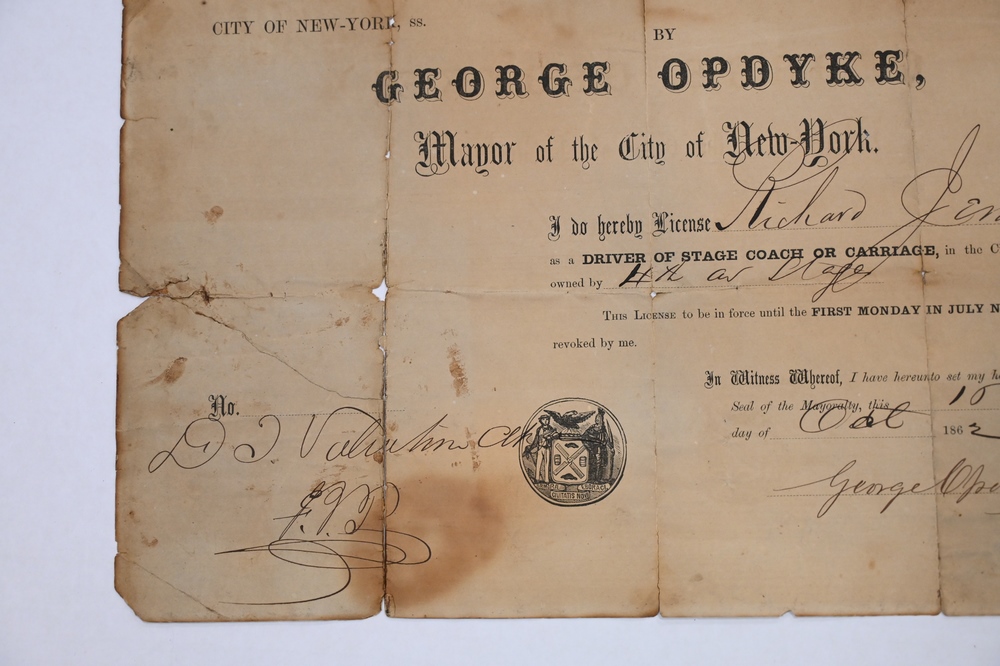 CITY OF NEW-YORK, ss.
BY
GEORGE OPDYKE,
Mayor of the City of New-York.
I do hereby License Richard Jen
as a DRIVER OF STAGE COACH OR CARRIAGE, in the C
owned by 4th av Stages
THIS LICENSE to be in force until the FIRST MONDAY IN JULY N
revoked by me.
In Witness Whereof, I have hereunto set my h
Seal of the Mayoralty, this 10
day of Oct 1862
No.
D T Valentine
George Opd